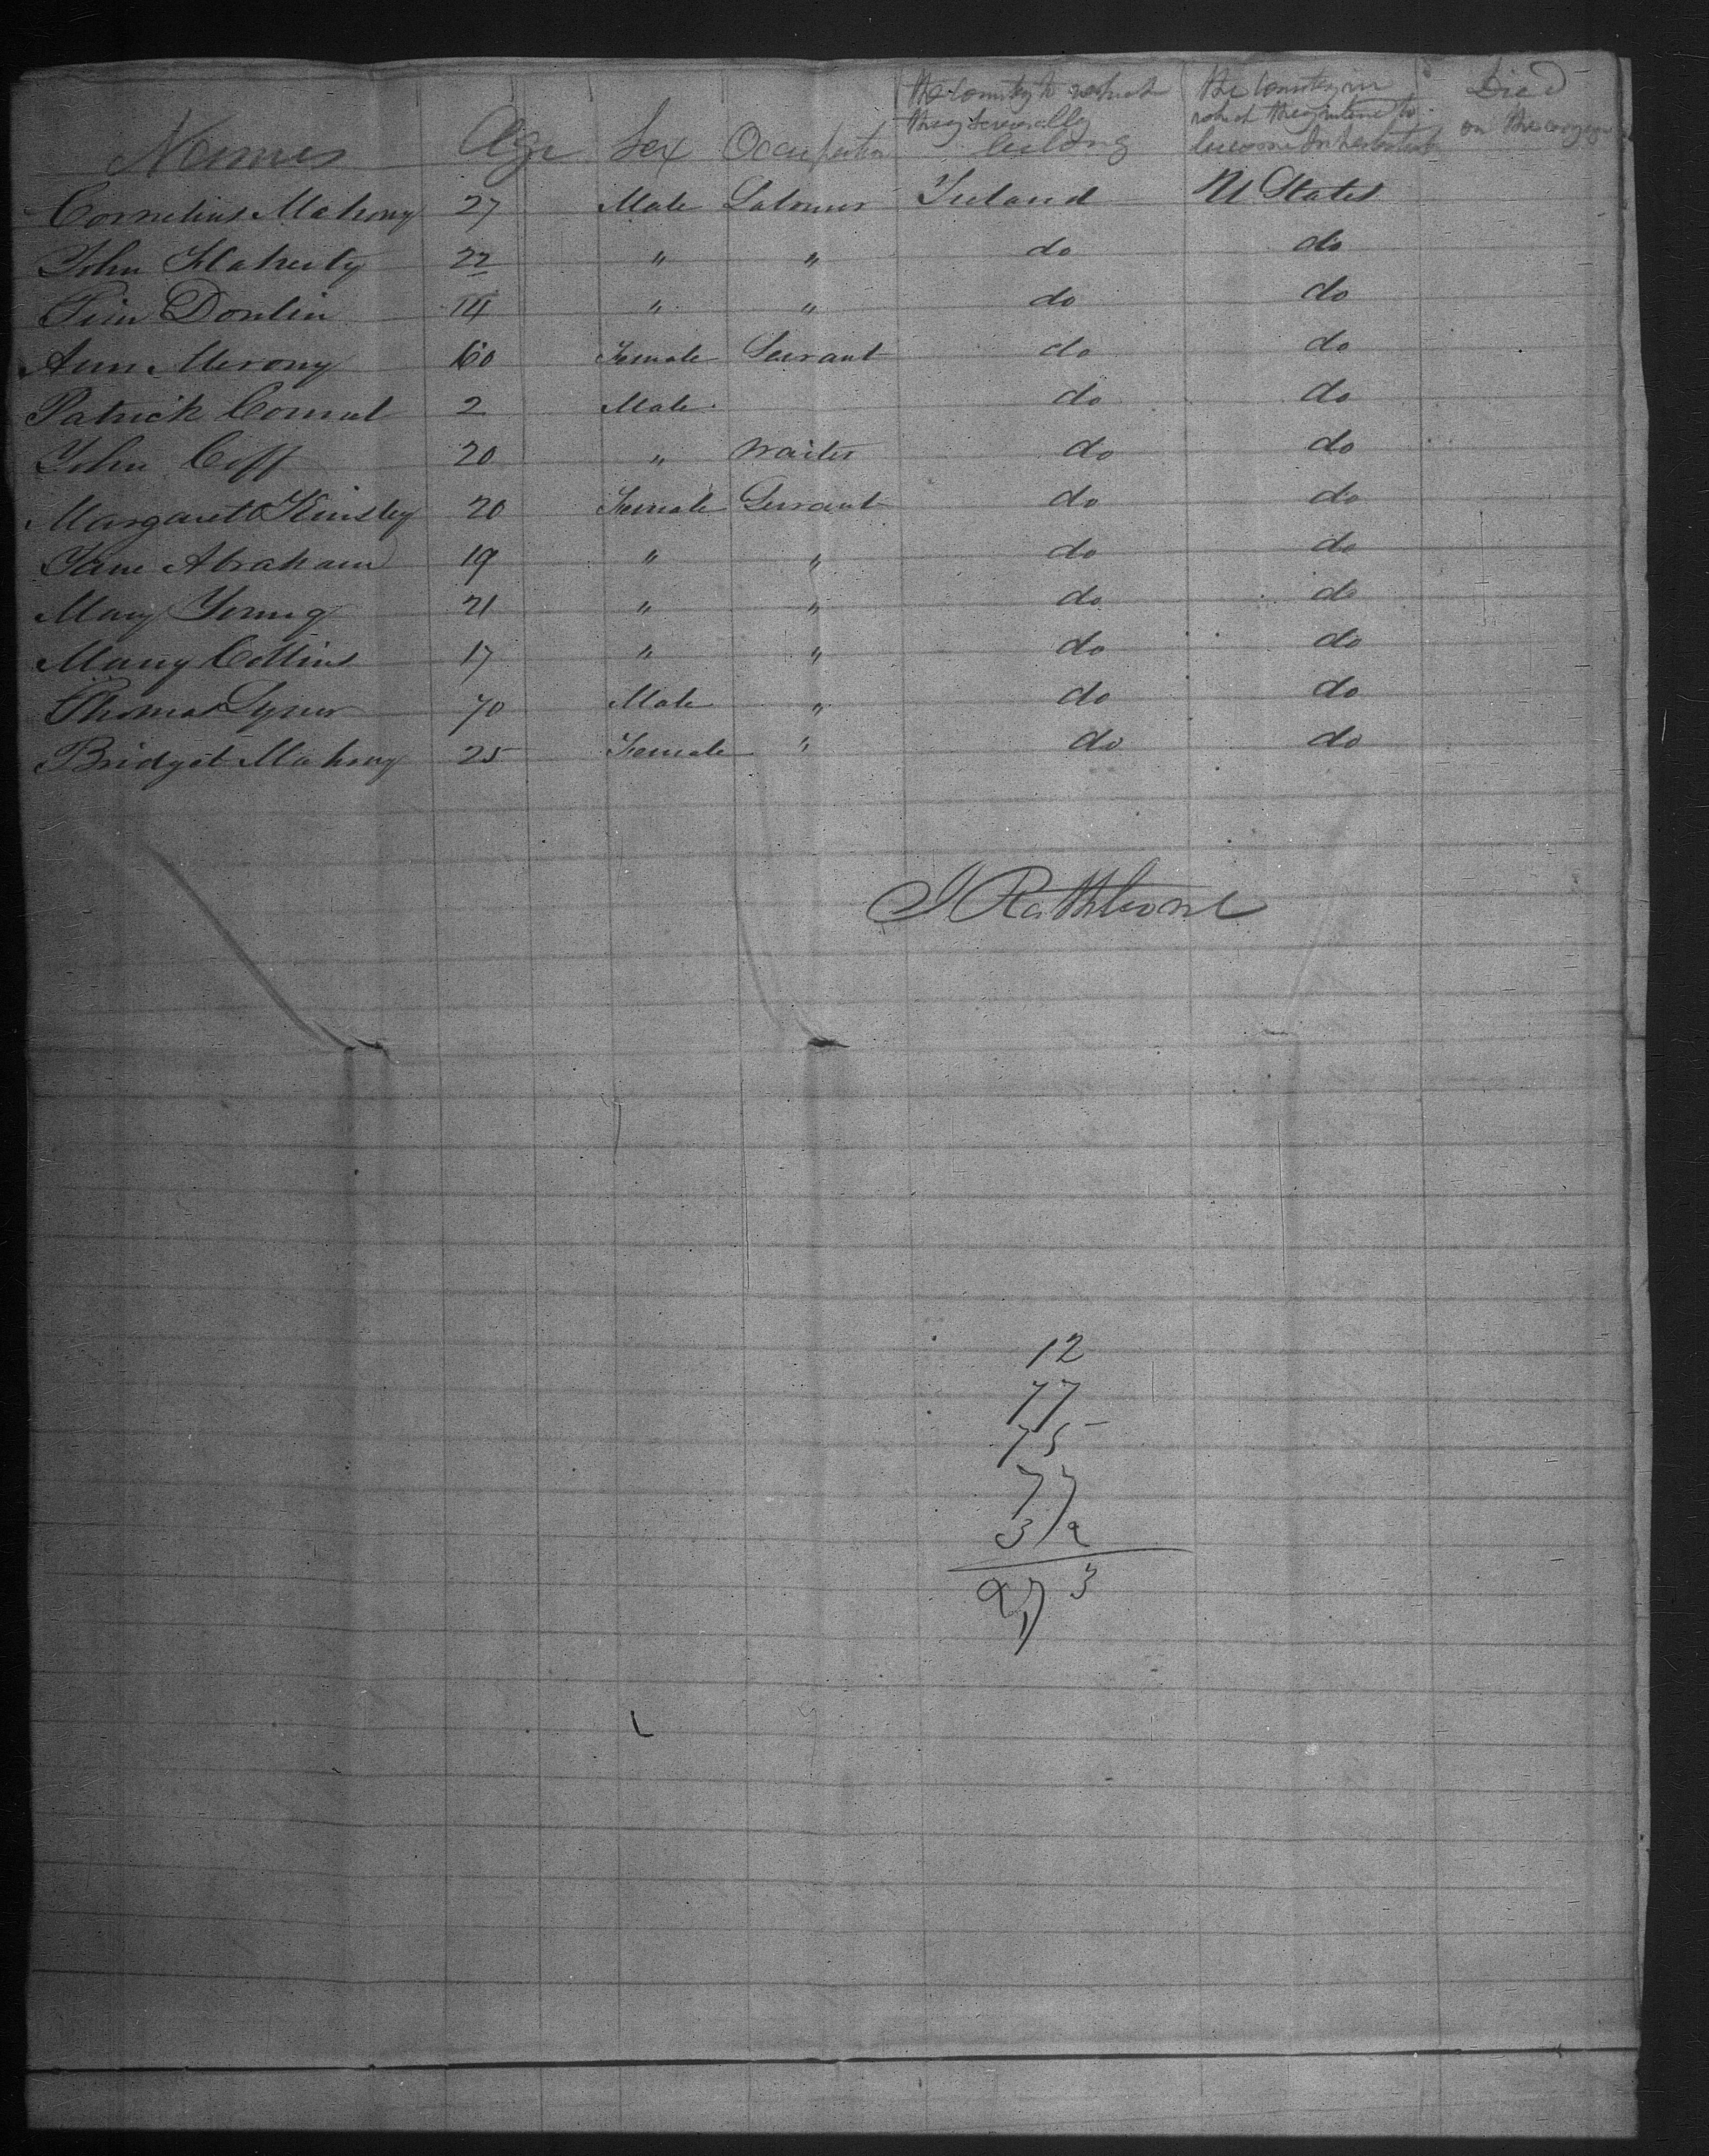 Names Age Sex Occupation The Country to which they severally belong The Country in which they intend to become Inhabitants Died on the voyage
Cornelius Mahony 27 Male Labourer Ireland U States
John Flaherty 22 " " do do
Tim Donlin 14 " " do do
Ann Merony 60 Female Servant do do
Patrick 2 Male do do
John Coff 20 " Waiter do do
Margaret Kinsley 20 Female Servant do do
Jane Abraham 19 " " do do
Mary Young 21 " " do do
Mary Collins 17 " " do do
Thomas 70 Male " do do
Bridget Mahony 25 Female " do do
J Rathbone
12
77
75
77
32
273